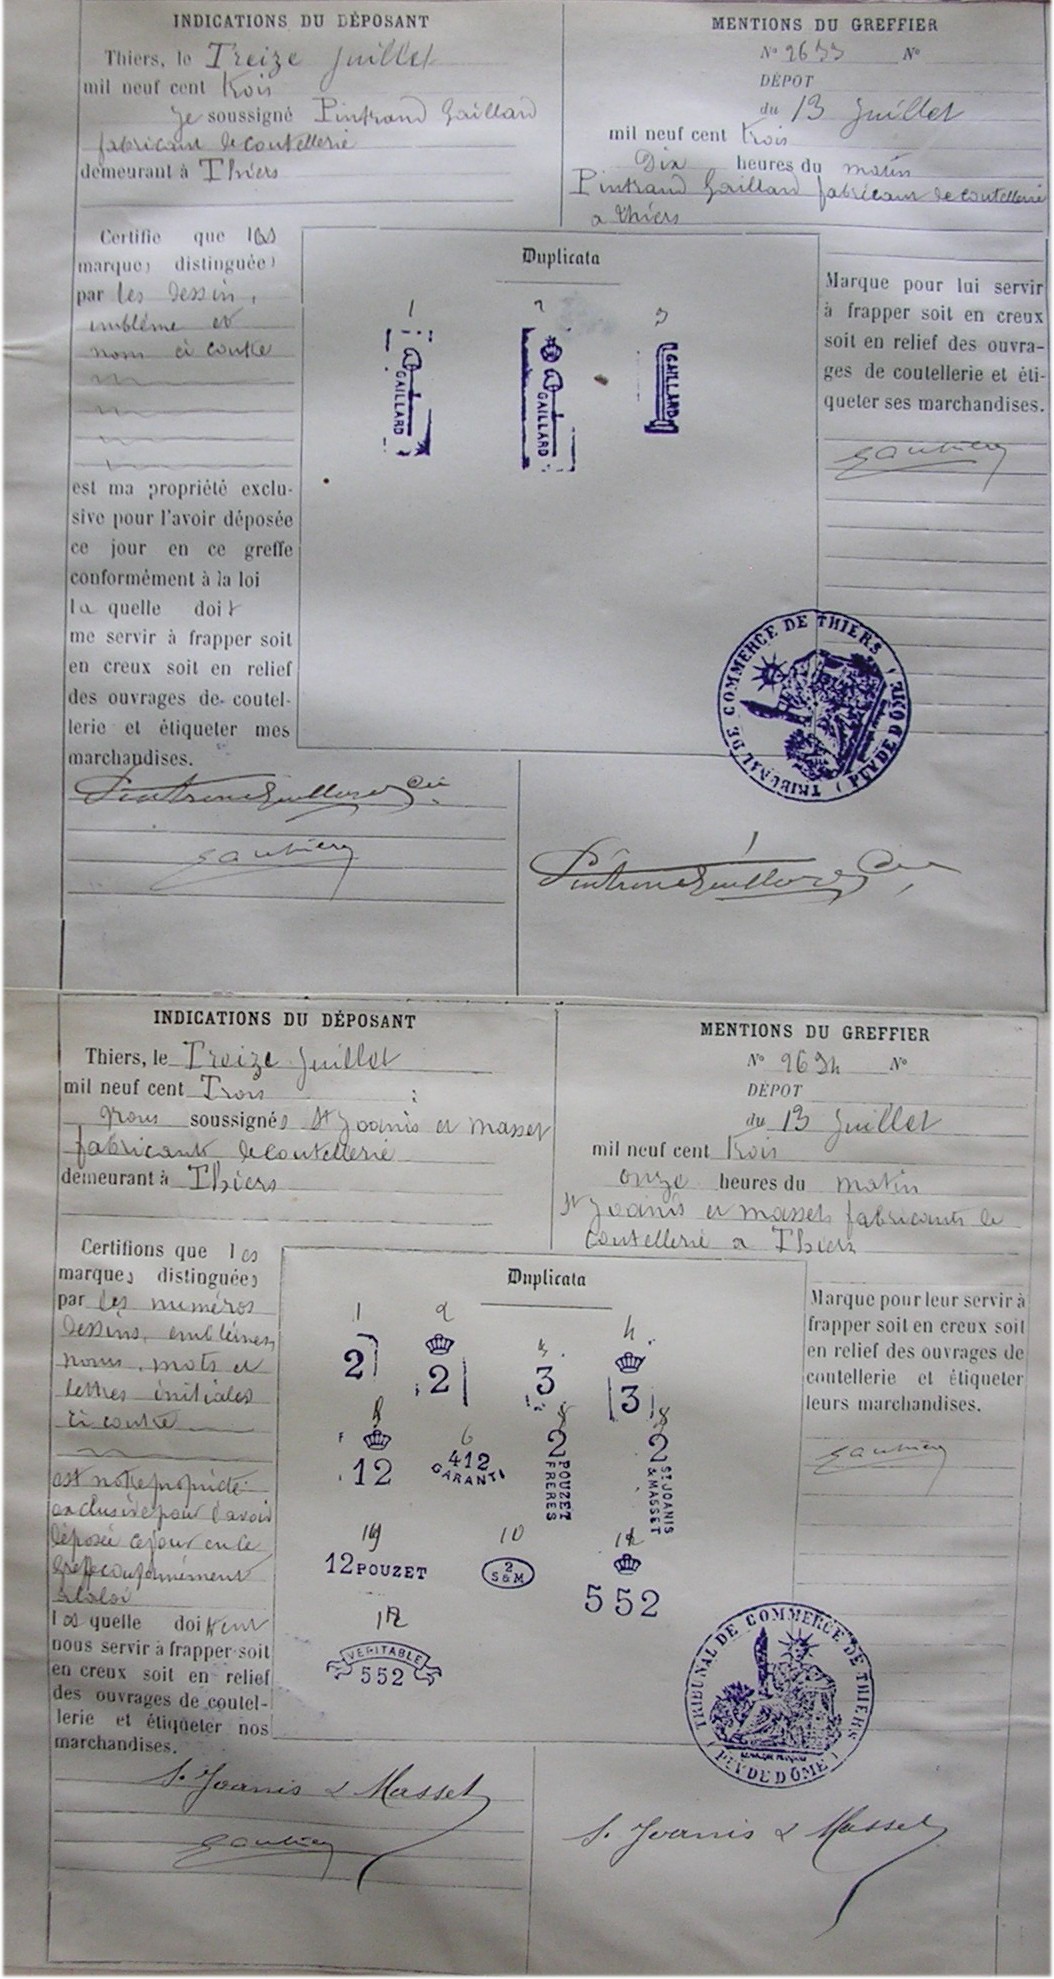 INDICATIONS DU DÉPOSANT
Thiers, le Treize Juillet
mil neuf cent trois
je soussigné Pintrand Gaillard
fabricant de coutellerie
demeurant à Thiers
MENTIONS DU GREFFIER
N° 2633 N°
DÉPOT
du 13 Juillet
mil neuf cent trois
Dix heures du matin
Pintrand Gaillard fabricant de coutellerie
a thiers
Certifie que les
marques distinguées
par les dessin,
emblême et
nom ci contre
est ma propriété exclu-
sive pour l'avoir déposée
ce jour en ce greffe
conformément à la loi
la quelle doit
me servir à frapper soit
en creux soit en relief
des ouvrages de coutel-
lerie et étiqueter mes
marchandises.
Duplicata
1 2 3
GAILLARD
GAILLARD
GAILLARD
Marque pour lui servir
à frapper soit en creux
soit en relief des ouvra-
ges de coutellerie et éti-
queter ses marchandises.
TRIBUNAL DE COMMERCE DE THIERS
( PUY DE DOME )
INDICATIONS DU DÉPOSANT
Thiers, le Treize Juillet
mil neuf cent Trois
Nous soussignés St Joanis et Masset
fabricants de coutellerie
demeurant à Thiers
MENTIONS DU GREFFIER
N° 2634 N°
DÉPOT
du 13 Juillet
mil neuf cent trois
onze heures du matin
St Joanis et Masset fabricants de
coutellerie a Thiers
Certifions que les
marques distinguées
par les numéros
dessins, emblêmes,
noms, mots et
lettres initiales
ci contre
est notre propriété
exclusive pour l'avoir
déposée ce jour en ce
greffe conformément
à la loi
les quelle doivent
nous servir à frapper soit
en creux soit en relief
des ouvrages de coutel-
lerie et étiqueter nos
marchandises.
Duplicata
1 2 3 4
2 2 3 3
6
12
412
GARANTI
2
POUZET
FRERES
2
ST JOANIS
& MASSET
10
12 POUZET
2
S & M
552
12
VERITABLE
552
Marque pour leur servir à
frapper soit en creux soit
en relief des ouvrages de
coutellerie et étiqueter
leurs marchandises.
TRIBUNAL DE COMMERCE DE THIERS
( PUY DE DOME )
S. Joanis & Masset
S. Joanis & Masset